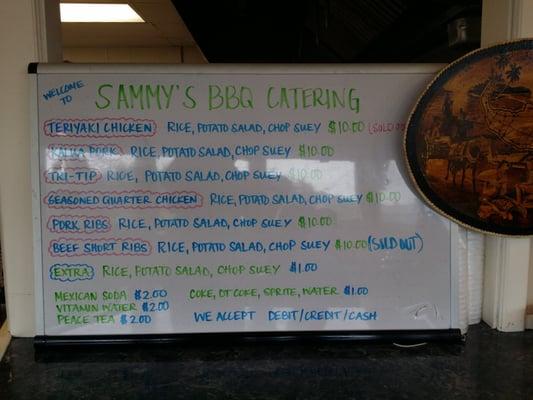 WELCOME TO
SAMMY'S BBQ CATERING
TERIYAKI CHICKEN RICE, POTATO SALAD, CHOP SUEY $10.00 (SOLD
KALUA PORK RICE, POTATO SALAD, CHOP SUEY $10.00
TRI-TIP RICE, POTATO SALAD, CHOP SUEY $10.00
SEASONED QUARTER CHICKEN RICE, POTATO SALAD, CHOP SUEY $10.00
PORK RIBS RICE, POTATO SALAD, CHOP SUEY $10.00
BEEF SHORT RIBS RICE, POTATO SALAD, CHOP SUEY $10.00 (SOLD OUT)
EXTRA RICE, POTATO SALAD, CHOP SUEY $1.00
MEXICAN SODA $2.00 COKE, DT COKE, SPRITE, WATER $1.00
VITAMIN WATER $2.00
PEACE TEA $2.00 WE ACCEPT DEBIT/CREDIT/CASH